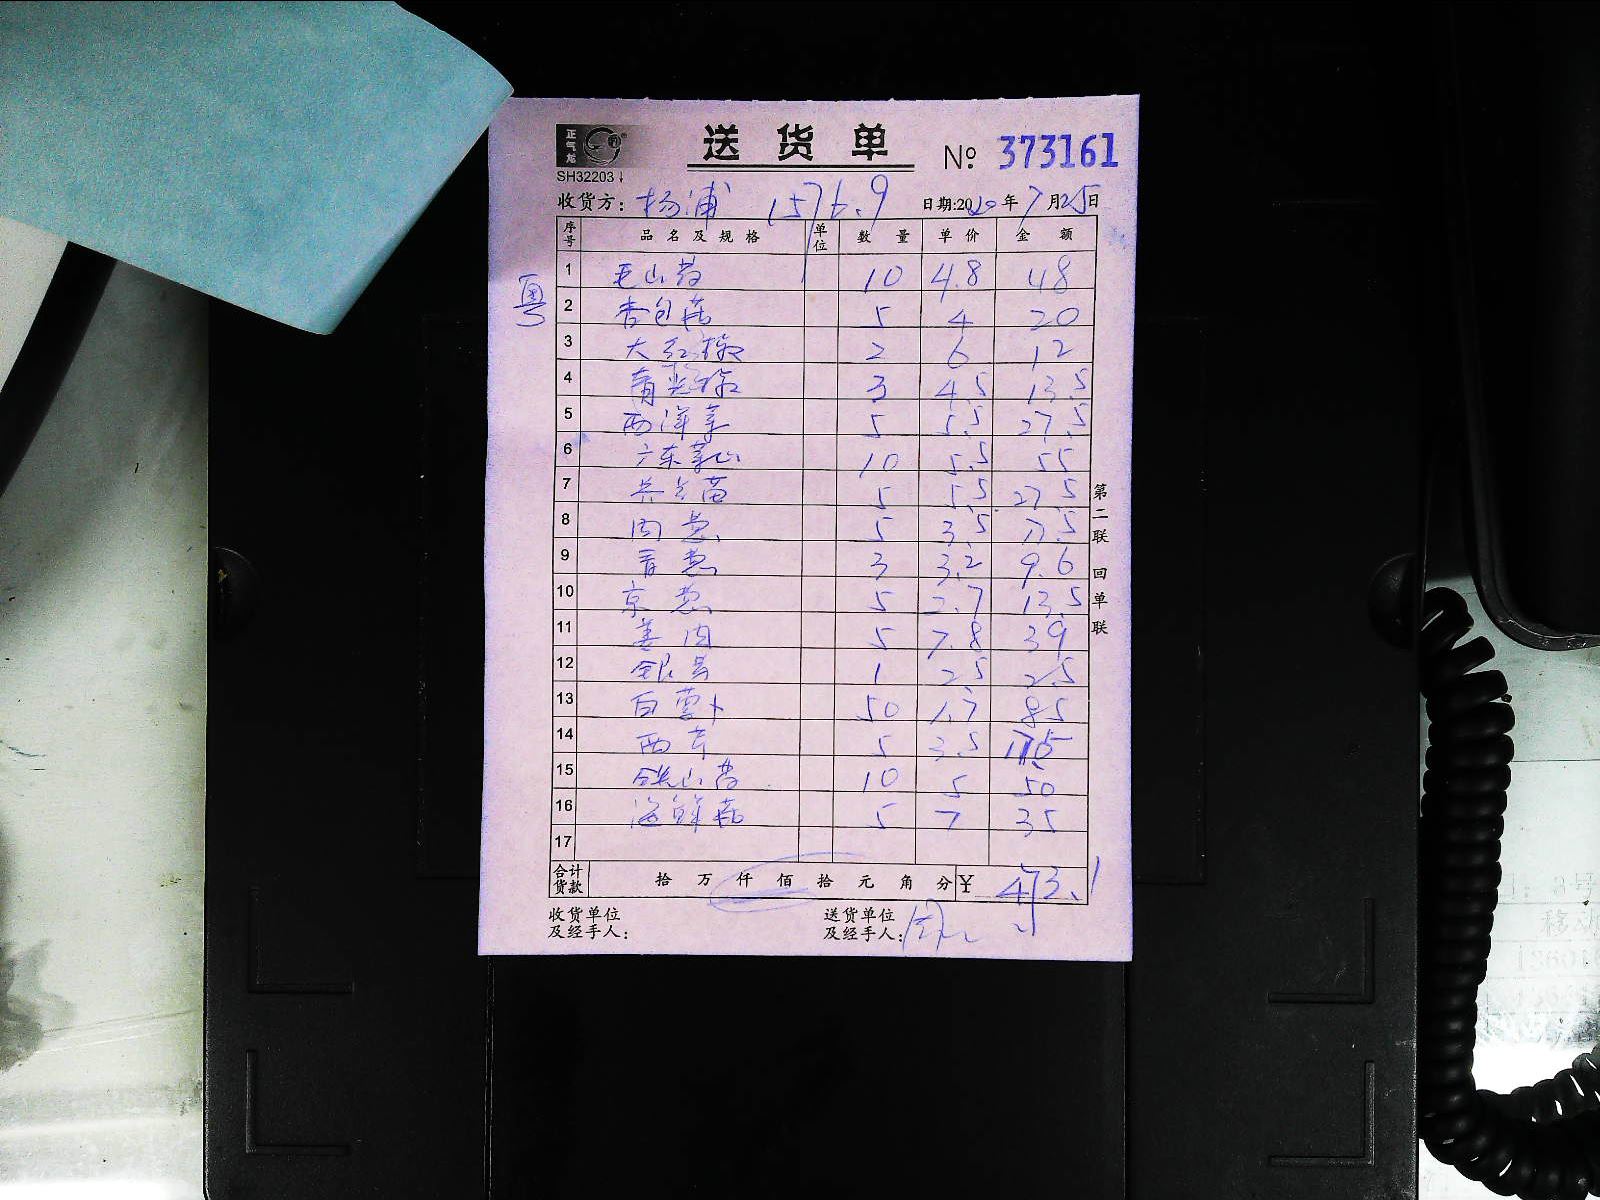 正气龙
送货单 № 373161
SH32203
收货方: 杨浦 1576.9 日期:2020年7月25日
序号 品名及规格 单位 数量 单价 金额
粤
1 毛山药 10 4.8 48
2 杏包菇 5 4 20
3 大红椒 2 6 12
4 青尖椒 3 4.5 13.5
5 西洋菜 5 5.5 27.5
6 广东菜心 10 5.5 55
7 5 5.5 27.5
8 肉葱 5 3.5 17.5
9 青葱 3 3.2 9.6
10 京葱 5 2.7 13.5
11 姜肉 5 7.8 39
12 银芽 1 2.5 2.5
13 白萝卜 50 1.7 85
14 西芹 5 3.5 17.5
15 铁山药 10 5 50
16 海鲜菇 5 7 35
17
合计货款 拾 万 仟 佰 拾 元 角 分 ¥ 473.1
收货单位及经手人:
送货单位及经手人:
第二联 回单联